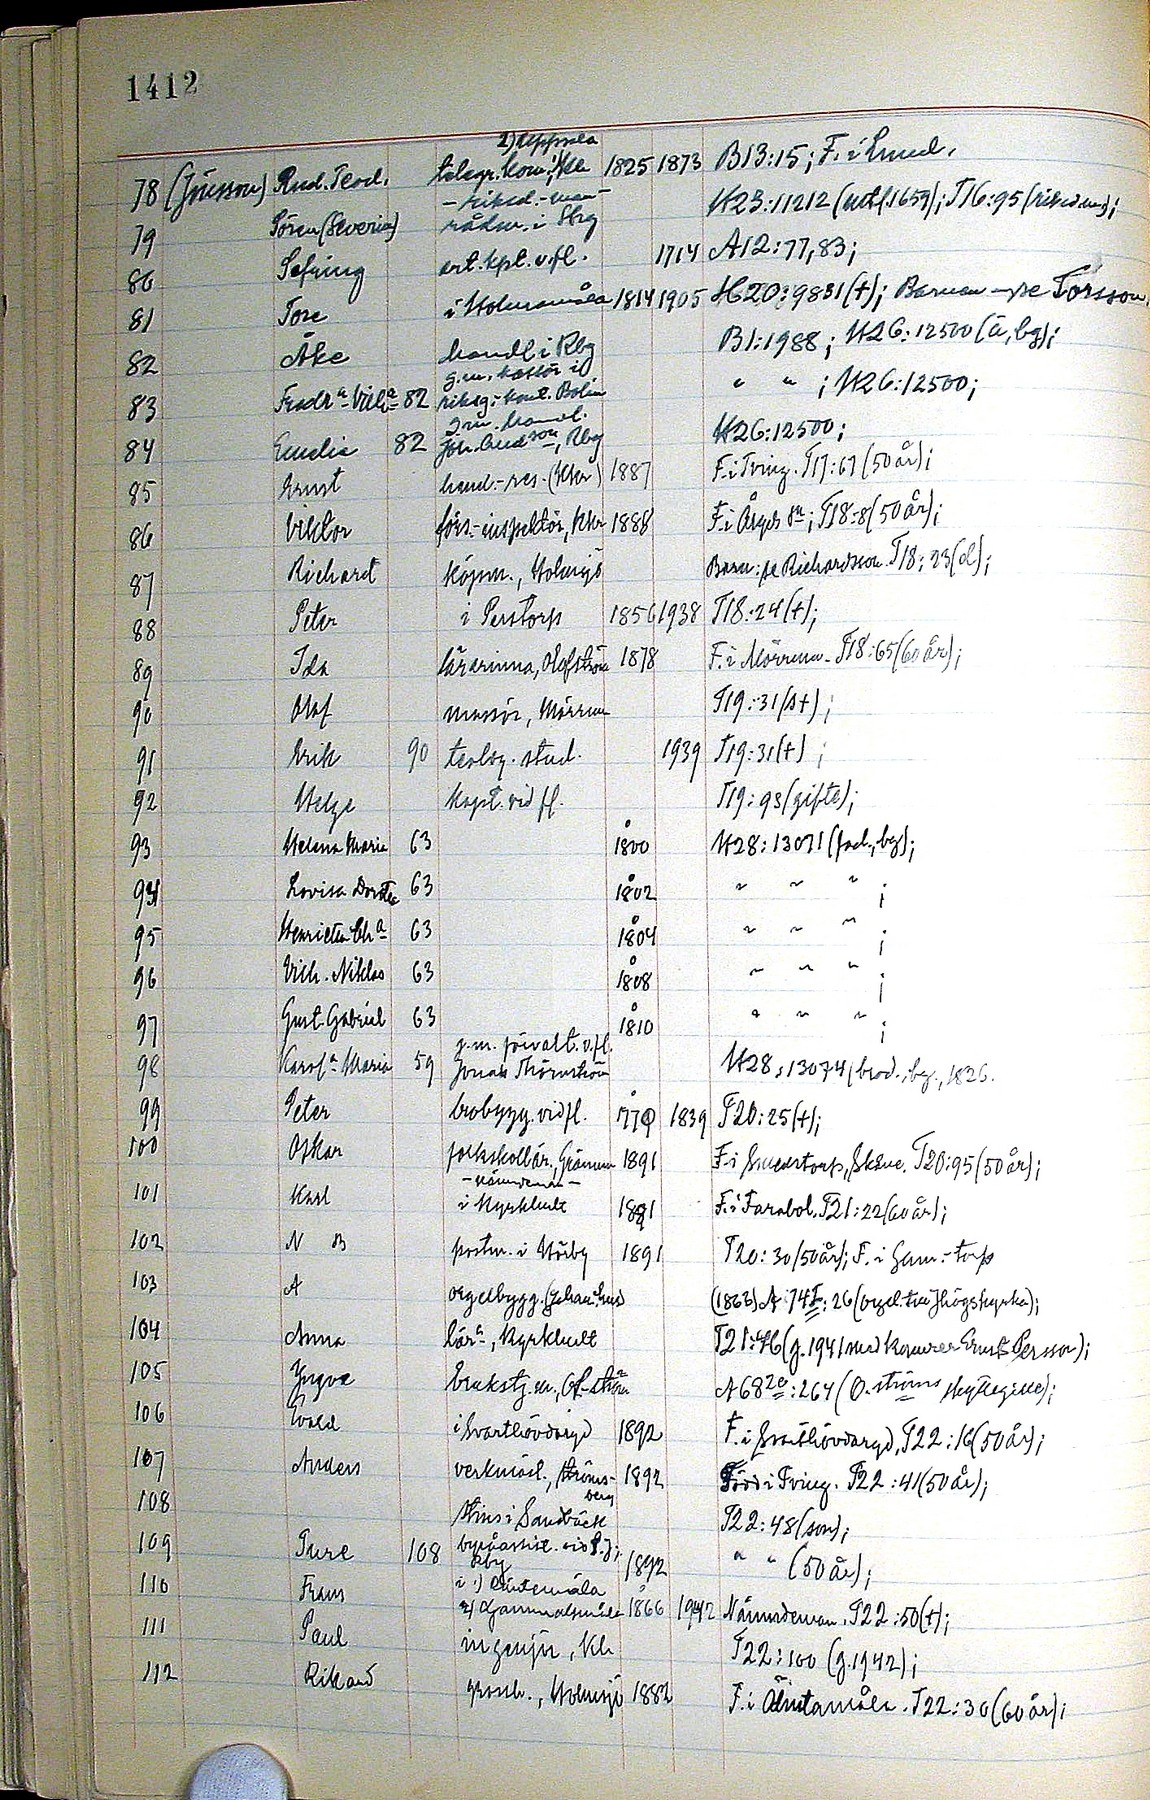 1412
2) Uppsala
78 (Jönsson) Rud. Teod. telegr. kom. 1825 1873 B13:15; F. i Lund.
- riksd.-man -
79 Sören (Severin) rådm. i Sbg H23:11212 (utdl. 1659); T16:95 (riksd.m.);
80 Sefring art. kpt. v. fl. 1714 A12:77, 83;
81 Tore i Holmamåla 1814 1905 H20:9831 (+); Barnen Torsson,
82 Åke handl i Kbg B1:1988; H26:12500 (a, bg);
g.m. kassör i
83 Fredr.a Vilh.a 82 riksg:kont. Bolin " " ; H26:12500;
g.m. handl.
84 Emelie 82 Kbg H26:12500;
85 Ernst hand.-res. (Khr) 1887 F. i Tving. T17:67 (50 år);
86 Viktor förs.-inspektör, Khr 1888 F. i T18:8 (50 år);
87 Richard köpm., Holmsjö Barn: se Richardsson. T18:23 (d);
88 Peter i Perstorp 1856 1938 T18:24 (+);
89 Ida lärarinna, Olofström 1878 F. i Mörrum. T18:65 (60 år);
90 Olof massör, Mörrum T19:31 (st);
91 Erik 90 teolog. stud. 1939 T19:31 (+);
92 Helge kapt. vid fl. T19:93 (gifte);
93 Helena Maria 63 1800 H28:13071 (fad., bg);
94 Lovisa Dorotea 63 1802 " " " ;
95 Henrietta Ch.a 63 1804 " " " ;
96 Vilh. Niklas 63 1808 " " " ;
97 Gust. Gabriel 63 1810 " " " ;
g.m. förvalt. v. fl.
98 Karol.a Maria 59 Jonas Thörnström H28:13074 (brod., bg., 1826.
99 Peter brobygg. vid fl. 1779 1839 T20:25 (+);
100 Oskar folkskollär., 1891 F. i Smedstorp, Skåne. T20:95 (50 år);
- nämndeman -
101 Karl i Kyrkhult 1881 F. i Farabol. T21:22 (60 år);
102 N B postm. i Hörby 1891 T20:30 (50 år); F. i Gam.-torp
103 A orgelbygg. (1863) A 74 I:26 (orgel.
104 Anna lär.a, Kyrkhult T21:46 (g. 1941 med Kamrer Ernst Persson);
105 Yngve brukstj.m., Ol-ström A 68 2o:264 (O.ströms skyttegille);
106 Evald i Svarthövdaryd 1892 F. i Svarthövdaryd, T22:16 (50 år);
107 Anders verkmäst., Strömsberg 1892 Född i Tving. T22:41 (50 år);
108 Stins i Sandbäck T22:48 (son);
109 Ture 108 byråassist. vid S.J; Kbg 1892 " " (50 år);
110 Frans i 1) 2) Gammalsmåla 1866 1942 Nämndeman. T22:50 (+);
111 Paul ingenjör, Kh T22:100 (g. 1942);
112 Rikard grossh., Holmsjö 1882 F. i Älmtamåla. T22:30 (60 år);